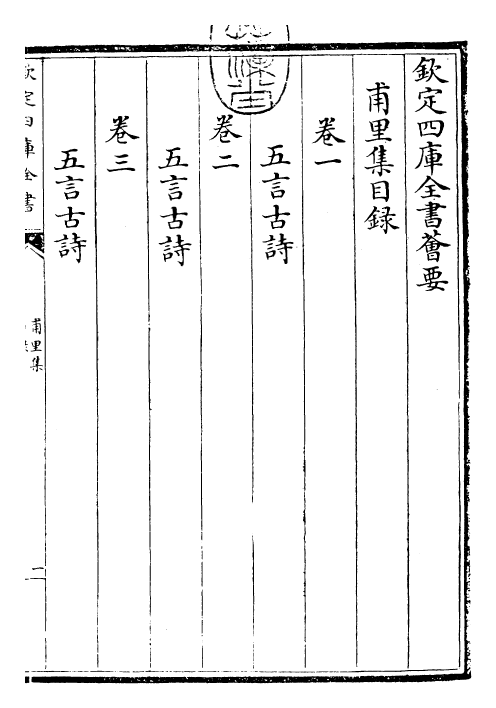 欽定四庫全書薈要
甫里集目録
卷一
五言古詩
卷二
五言古詩
卷三
五言古詩
欽定四庫全書
甫里集